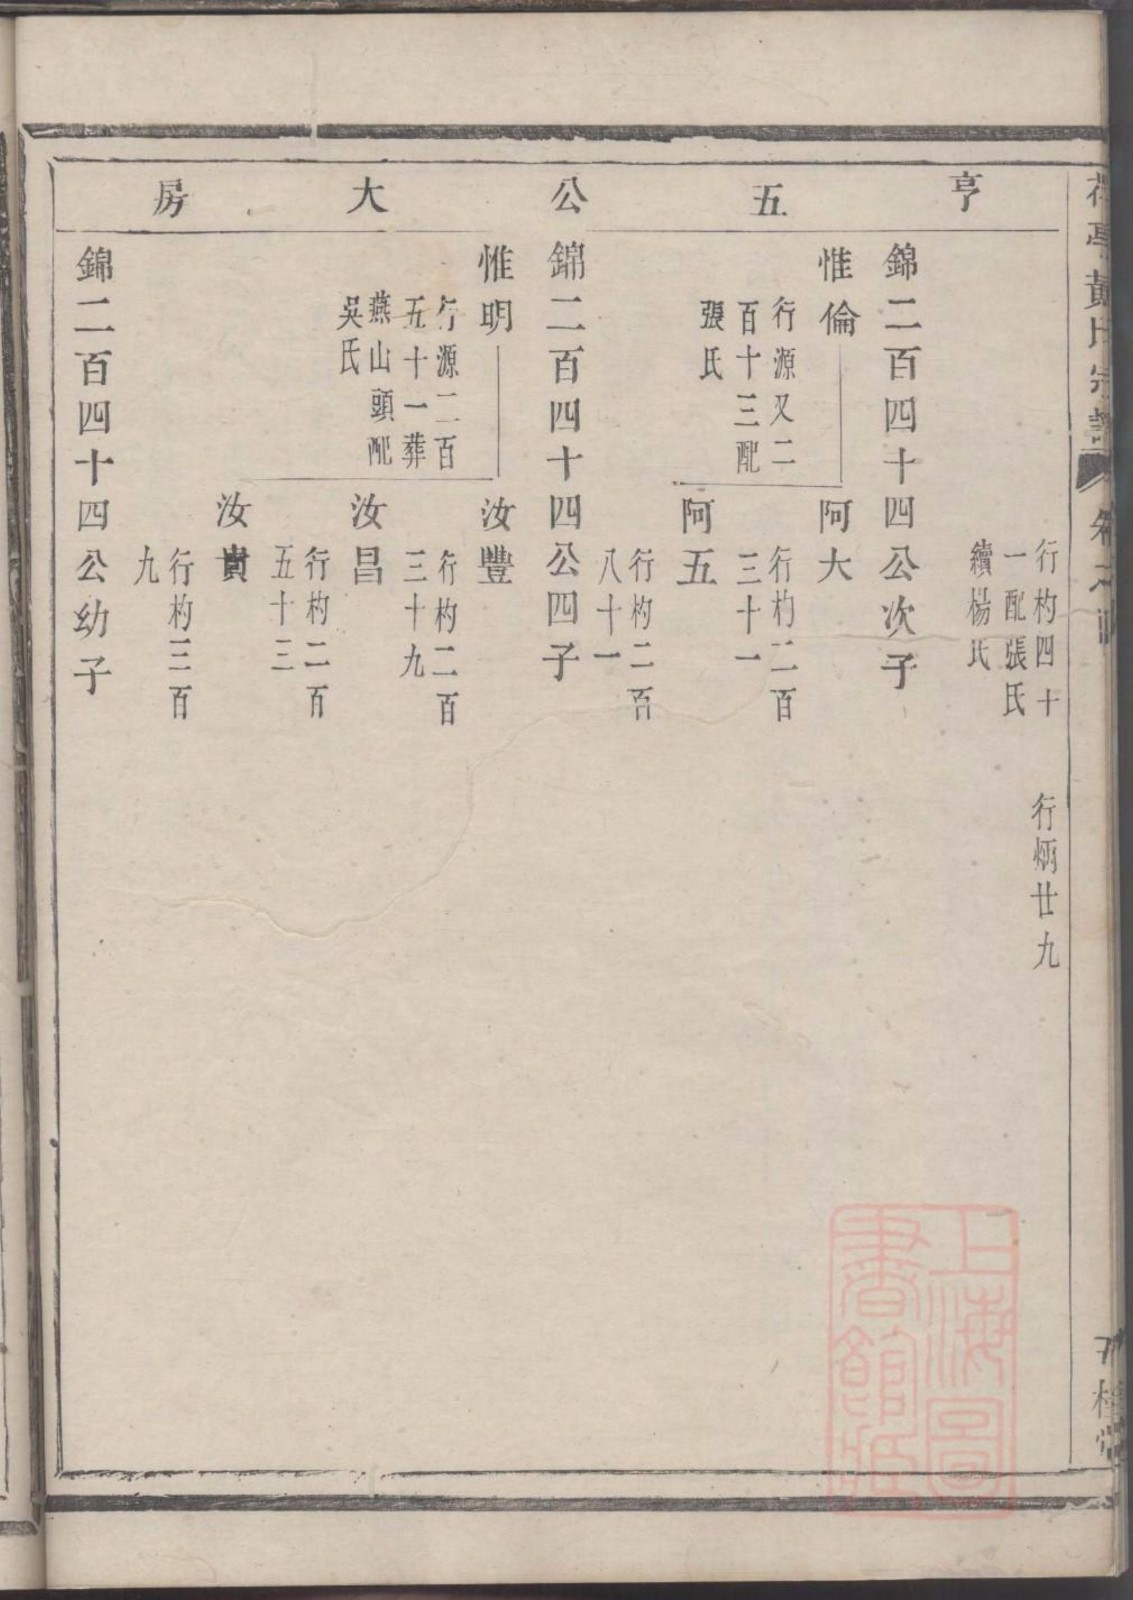 黃氏宗譜
亨五公大房
行杓四十
一配張氏
續楊氏
行炳廿九
錦二百四十四公次子
惟倫
行源又二
百十三配
張氏
阿大
行杓二百
三十一
阿五
行杓二百
八十一
錦二百四十四公四子
惟明
行源二百
五十一葬
燕山頭配
吳氏
汝豐
行杓二百
三十九
汝昌
行杓二百
五十三
汝貴
行杓三百
九
錦二百四十四公幼子
上海圖
書館藏